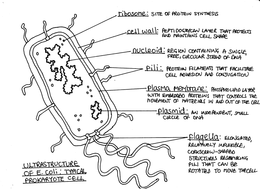 ribosome: SITE OF PROTEIN SYNTHESIS
cell wall: PEPTIDOGLYCAN LAYER THAT PROTECTS
AND MAINTAINS CELL SHAPE
nucleoid: REGION CONTAINING A SINGLE,
FREE, CIRCULAR STRAND OF DNA
pili: PROTEIN FILAMENTS THAT FACILITATE
CELL ADHESION AND CONJUGATION
plasma membrane: PHOSPHOLIPID LAYER
WITH EMBEDDED PROTEINS THAT CONTROLS THE
MOVEMENT OF MATERIALS IN AND OUT OF THE CELL
plasmid: AN INDEPENDENT, SMALL
CIRCLE OF DNA
flagella: ELONGATED,
RELATIVELY INFLEXIBLE,
CORKSCREW-SHAPED
STRUCTURES RESEMBLING
PILI THAT CAN BE
ROTATED TO MOVE THE CELL
ULTRASTRUCTURE
OF E. COLI: TYPICAL
PROKARYOTE CELL